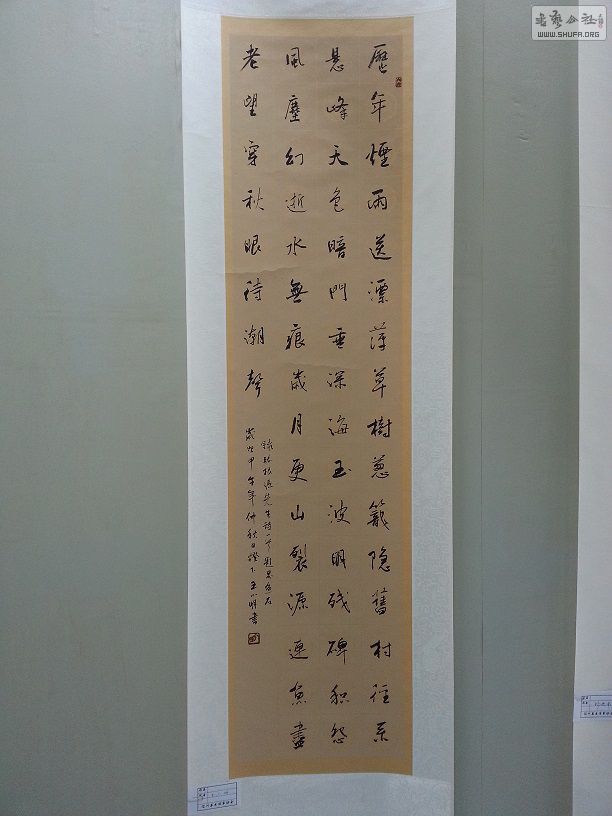 歷年煙雨送漂萍草樹葱籠隐舊村径系
悬峰天色暗門垂深海玉波明残碑积怨
風塵幻逝水無痕歲月更山裂源連魚盡
老望穿秋眼待潮聲
先生詩一首題
歲次甲午年仲秋日燈下王小明書
書藝公社
WWW.SHUFA.ORG